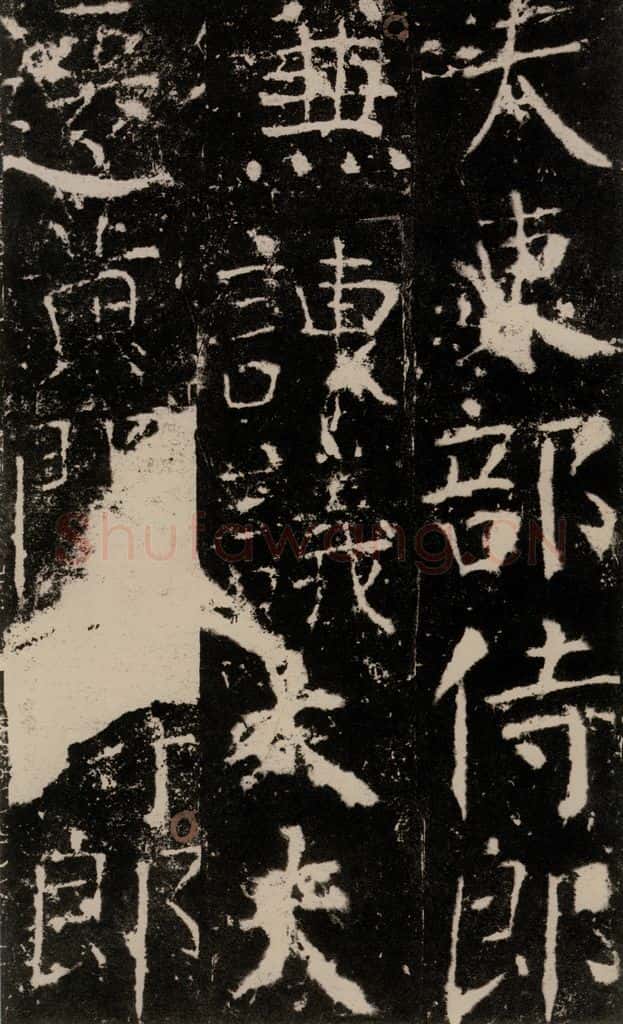 夫吏部侍郎
兼諫議大夫
遷黄門侍郎
Shufawang.CN